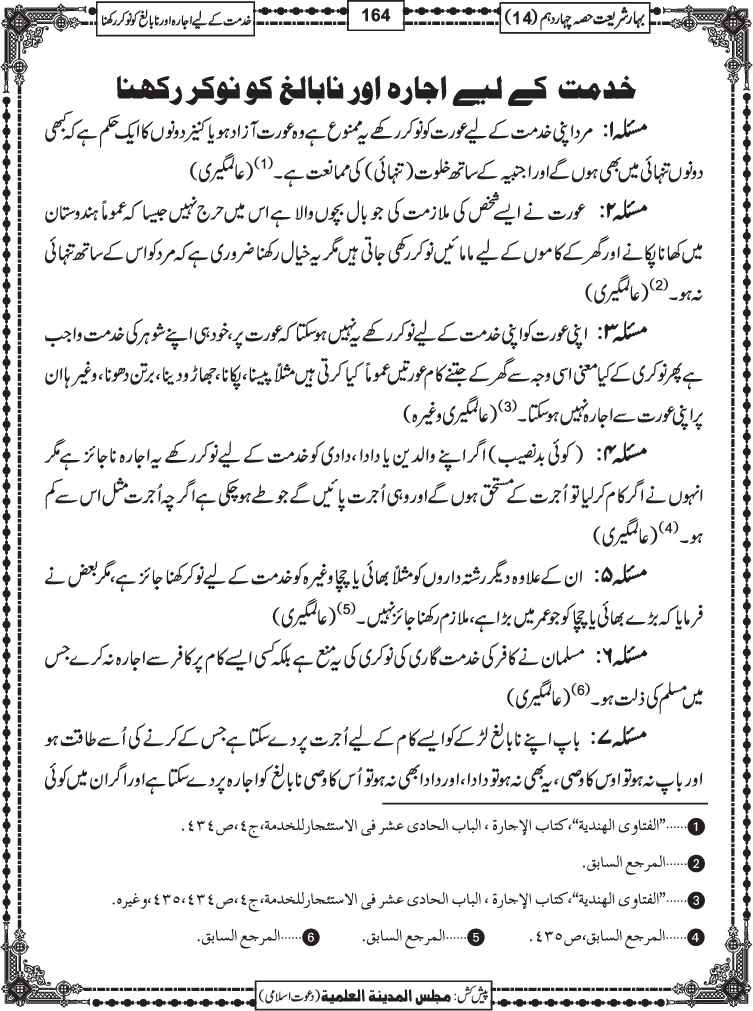 بہار شریعت حصہ چہاردہم (14)
164
خدمت کے لیے اجارہ اور نابالغ کو نوکر رکھنا
خدمت کے لیے اجارہ اور نابالغ کو نوکر رکھنا
مسئلہ ۱: مرد اپنی خدمت کے لیے عورت کو نوکر رکھے یہ ممنوع ہے وہ عورت آزاد ہو یا کنیز دونوں کا ایک حکم ہے کہ کبھی
دونوں تنہائی میں بھی ہوں گے اور اجنبیہ کے ساتھ خلوت (تنہائی) کی ممانعت ہے۔(1) (عالمگیری)
مسئلہ ۲: عورت نے ایسے شخص کی ملازمت کی جو بال بچوں والا ہے اس میں حرج نہیں جیسا کہ عموماً ہندوستان
میں کھانا پکانے اور گھر کے کاموں کے لیے مامائیں نوکر رکھی جاتی ہیں مگر یہ خیال رکھنا ضروری ہے کہ مرد کو اس کے ساتھ تنہائی
نہ ہو۔(2) (عالمگیری)
مسئلہ ۳: اپنی عورت کو اپنی خدمت کے لیے نوکر رکھے یہ نہیں ہوسکتا کہ عورت پر، خود ہی اپنے شوہر کی خدمت واجب
ہے پھر نوکری کے کیا معنی اسی وجہ سے گھر کے جتنے کام عورتیں عموماً کیا کرتی ہیں مثلاً پیسنا، پکانا، جھاڑو دینا، برتن دھونا، وغیرہا ان
پر اپنی عورت سے اجارہ نہیں ہوسکتا۔(3) (عالمگیری وغیرہ)
مسئلہ ۴: (کوئی بدنصیب) اگر اپنے والدین یا دادا، دادی کو خدمت کے لیے نوکر رکھے یہ اجارہ ناجائز ہے مگر
انہوں نے اگر کام کرلیا تو اُجرت کے مستحق ہوں گے اور وہی اُجرت پائیں گے جو طے ہوچکی ہے اگرچہ اُجرت مثل اس سے کم
ہو۔(4) (عالمگیری)
مسئلہ ۵: ان کے علاوہ دیگر رشتہ داروں کو مثلاً بھائی یا چچا وغیرہ کو خدمت کے لیے نوکر رکھنا جائز ہے، مگر بعض نے
فرمایا کہ بڑے بھائی یا چچا کو جو عمر میں بڑا ہے، ملازم رکھنا جائز نہیں۔(5) (عالمگیری)
مسئلہ ۶: مسلمان نے کافر کی خدمت گاری کی نوکری کی یہ منع ہے بلکہ کسی ایسے کام پر کافر سے اجارہ نہ کرے جس
میں مسلم کی ذلت ہو۔(6) (عالمگیری)
مسئلہ ۷: باپ اپنے نابالغ لڑکے کو ایسے کام کے لیے اُجرت پر دے سکتا ہے جس کے کرنے کی اُسے طاقت ہو
اور باپ نہ ہو تو اوس کا وصی، یہ بھی نہ ہو تو دادا، اور دادا بھی نہ ہو تو اُس کا وصی نابالغ کو اجارہ پر دے سکتا ہے اور اگر ان میں کوئی
1......"الفتاوى الهندية"، كتاب الإجارة، الباب الحادى عشر فى الاستئجار للخدمة، ج٤، ص٤٣٤.
2......المرجع السابق.
3......"الفتاوى الهندية"، كتاب الإجارة، الباب الحادى عشر فى الاستئجار للخدمة، ج٤، ص٤٣٤،٤٣٥، وغيره.
4......المرجع السابق، ص٤٣٥. 5......المرجع السابق. 6......المرجع السابق.
پیش کش: مجلس المدینة العلمیة (دعوت اسلامی)